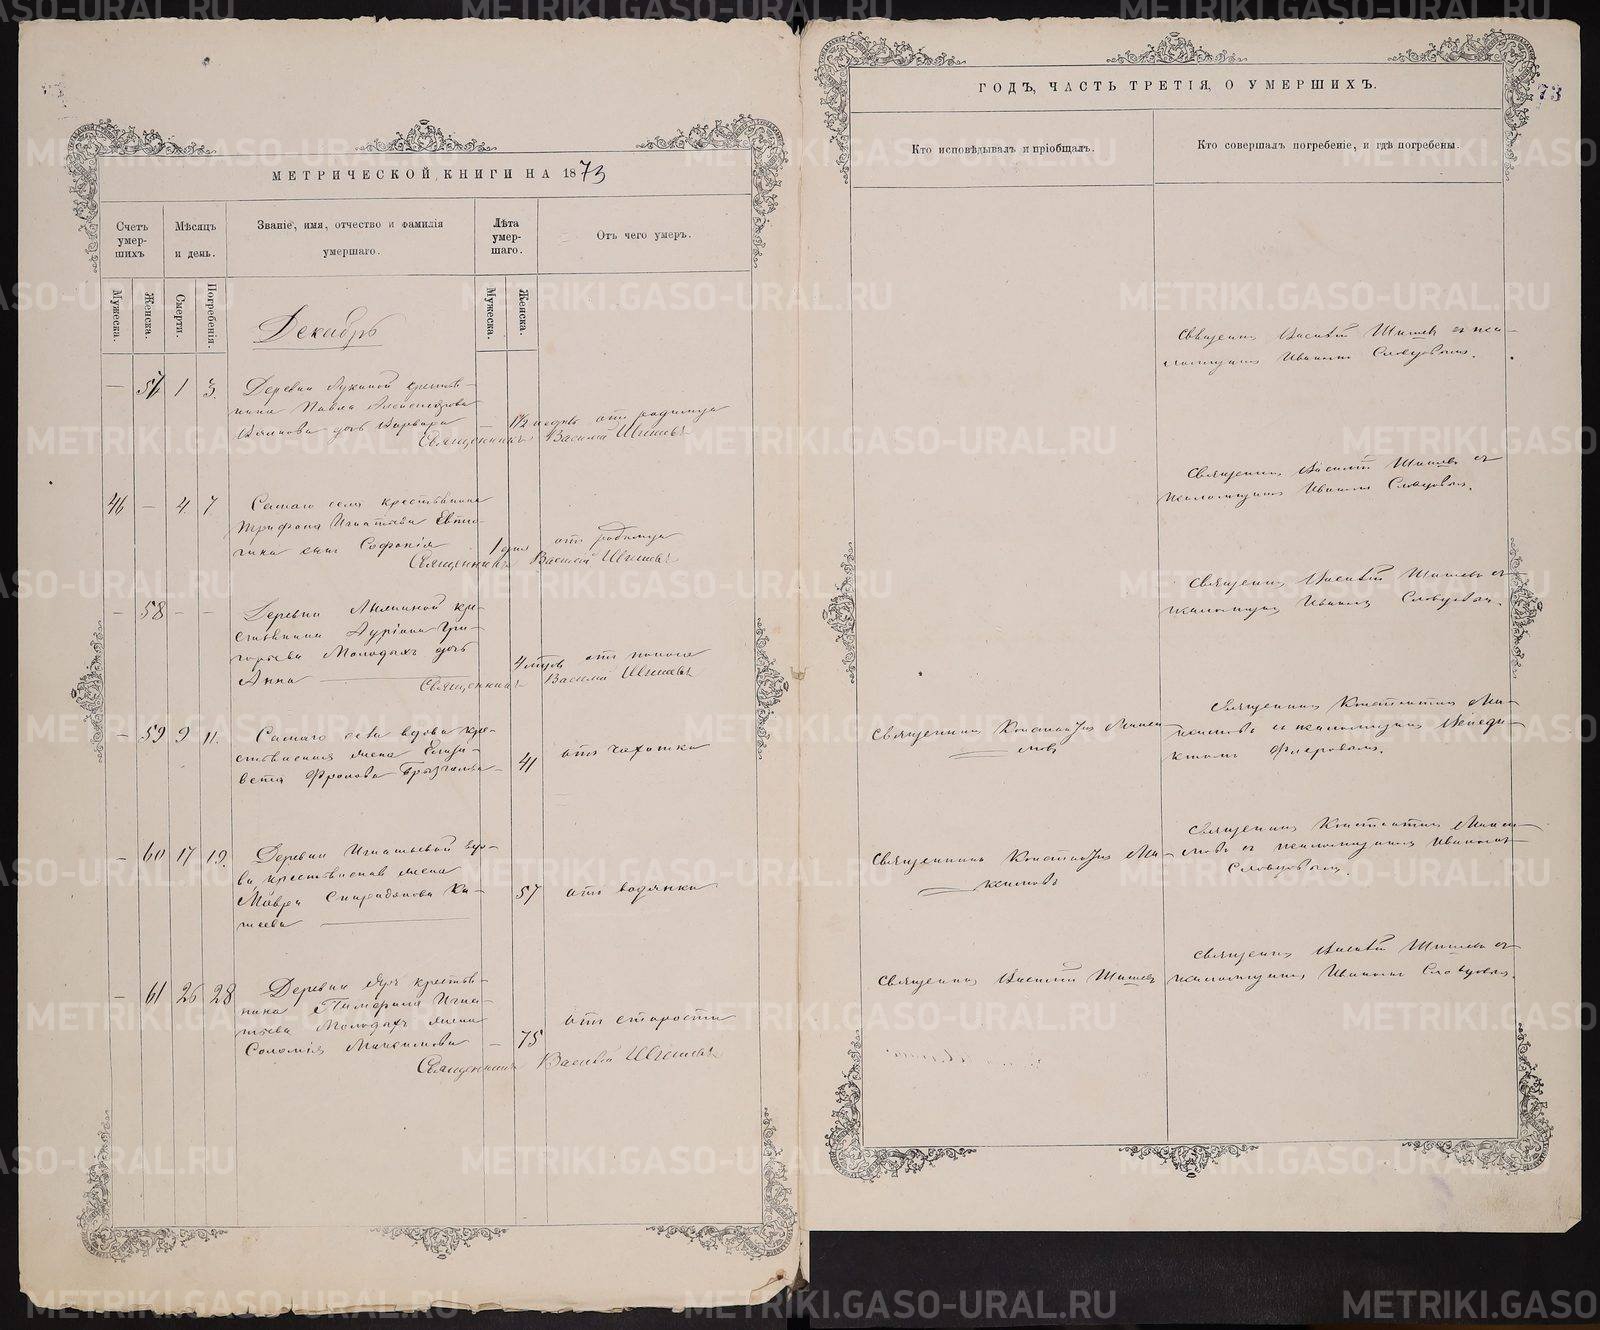 МЕТРИЧЕСКОЙ КНИГИ НА 1873
Счетъ умер- шихъ
Мѣсяцъ и день.
Званіе, имя, отчество и фамилія умершаго.
Лѣта умер- шаго.
Отъ чего умеръ.
Мужеска.
Женска.
Смерти.
Погребенія.
Мужеска.
Женска.
Декабрь
— 57 1 3. Деревни Лукиной крестья-
нина Павла
дочь Варвара — 1½ недѣль отъ родимца
Священникъ Василій Шишевъ
46 — 4 7 Самаго села крестьянина
Трифона Игнатьева Евти-
сынъ Софонія 1 дня отъ родимца
Священникъ Василій Шишевъ
— 58 — — Деревни кре-
стьянина Гри-
горьева Молодыхъ дочь
Анна 4 отъ поноса
Священникъ Василій Шишевъ
— 59 9 11. Самаго села вдова кре-
стьянская жена Елиза-
вета Фролова — 41 отъ чахотки
— 60 17 19. Деревни Игнатьевой вдо-
ва крестьянская жена
Мавра Спиридонова Ка- 57 отъ водянки
— 61 26 28 Деревни крестья-
нина Памфила Игна-
тьева Молодыхъ жена
Соломія Максимова — 75 отъ старости
Священникъ Василій Шишевъ
ГОДЪ, ЧАСТЬ ТРЕТІЯ, О УМЕРШИХЪ.
73
Кто исповѣдывалъ и пріобщалъ.
Кто совершалъ погребеніе, и гдѣ погребены.
Священникъ Василій Шишевъ съ пса-
ломщикомъ Иваномъ Словцовымъ.
Священникъ Василій Шишевъ съ
псаломщикомъ Иваномъ Словцовымъ.
Священникъ Василій Шишевъ съ
псаломщикомъ Иваномъ Словцовымъ.
Священникъ Константинъ
Священникъ Константинъ
съ псаломщикомъ Венеди-
ктомъ Флеровымъ.
Священникъ Константинъ
Священникъ Константинъ
съ псаломщикомъ Иваномъ
Словцовымъ.
Священникъ Василій Шишевъ
Священникъ Василій Шишевъ съ
псаломщикомъ Иваномъ Словцовымъ.
METRIKI.GASO-URAL.RU